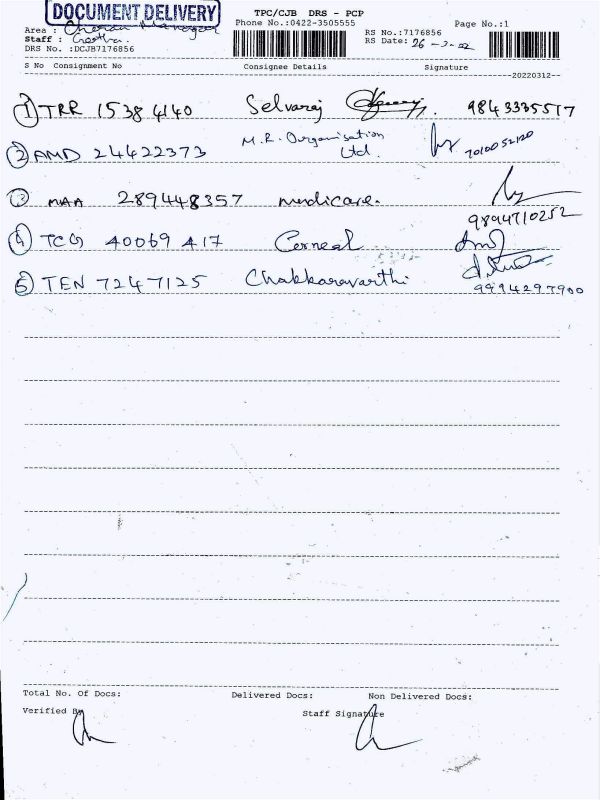 DOCUMENT DELIVERY
TPC/CJB DRS - PCP
Phone No.:0422-3505555
Page No.:1
Area : Cheran Managar
Staff : Geetha.
DRS No. :DCJB7176856
RS No.:7176856
RS Date: 26 -3-22
S No Consignment No Consignee Details Signature
20220312
1 TRR 1538 4140 Selvaraj 9843335517
2 AMD 24422373 M.R. Organisation Ltd. 7010052120
3 MAA 289448357 medicare. 9894710252
4 TCG 40069 417 Corneal
5 TEN 7247125 Chakkaravarthi 9994297900
Total No. Of Docs: Delivered Docs: Non Delivered Docs:
Verified By Staff Signature